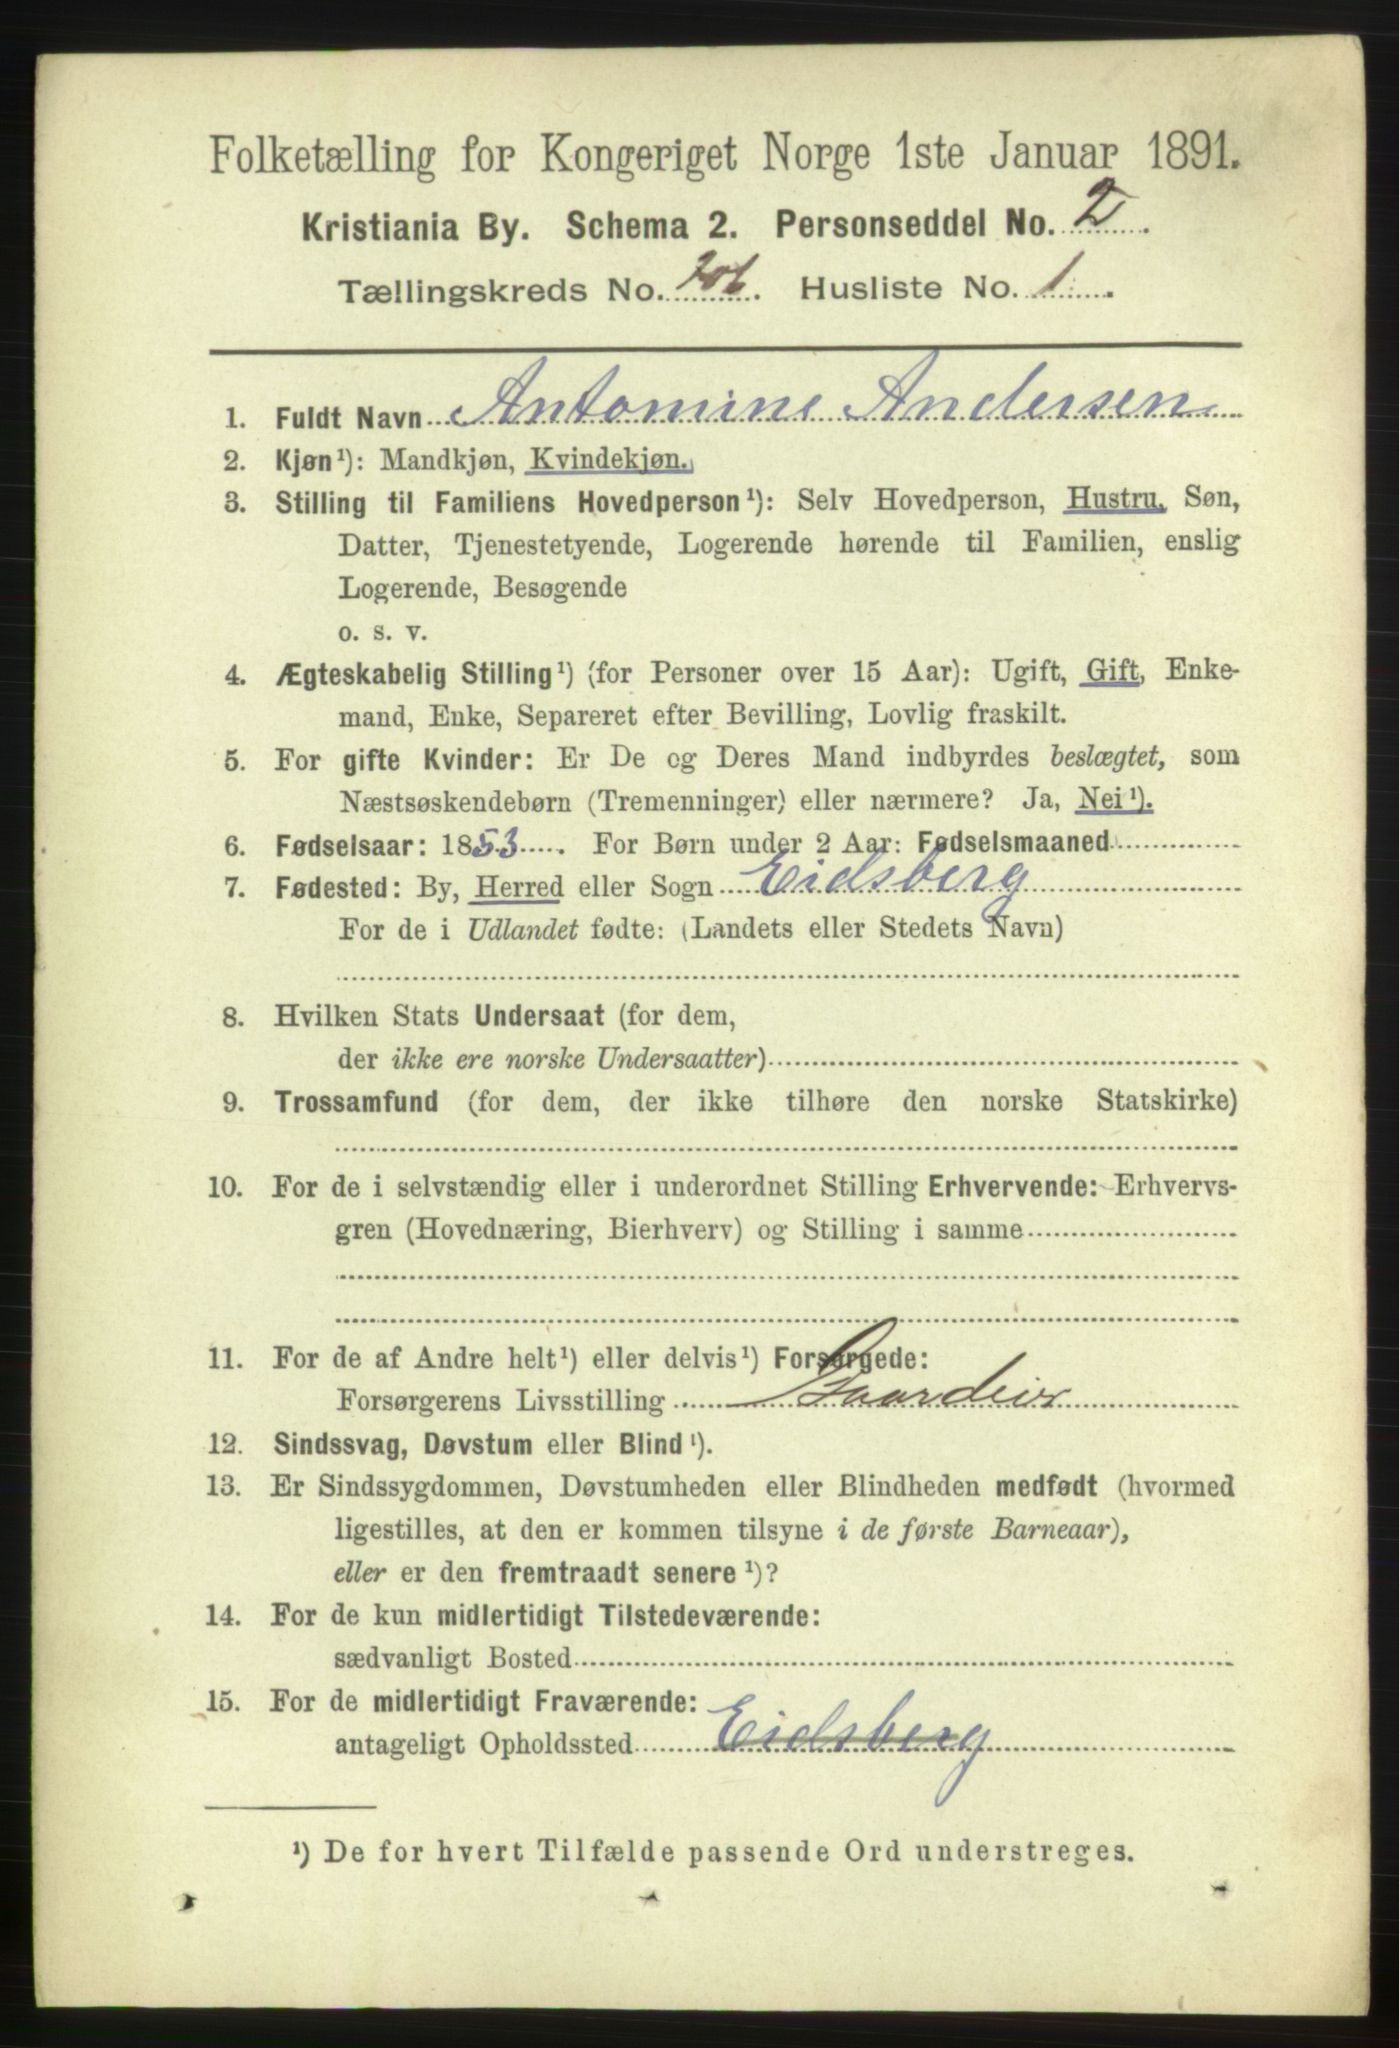 Folketælling for Kongeriget Norge 1ste Januar 1891.
Kristiania By. Schema 2. Personseddel No. 2.
Tællingskreds No. 206. Husliste No. 1.
1. Fuldt Navn Antomine Andersen
2. Kjøn¹): Mandkjøn, Kvindekjøn.
3. Stilling til Familiens Hovedperson¹): Selv Hovedperson, Hustru, Søn,
Datter, Tjenestetyende, Logerende hørende til Familien, enslig
Logerende, Besøgende
o. s. v.
4. Ægteskabelig Stilling¹) (for Personer over 15 Aar): Ugift, Gift, Enke-
mand, Enke, Separeret efter Bevilling, Lovlig fraskilt.
5. For gifte Kvinder: Er De og Deres Mand indbyrdes beslægtet, som
Næstsøskendebørn (Tremenninger) eller nærmere? Ja, Nei¹).
6. Fødselsaar: 1853. For Børn under 2 Aar: Fødselsmaaned
7. Fødested: By, Herred eller Sogn Eidsberg
For de i Udlandet fødte: (Landets eller Stedets Navn)
8. Hvilken Stats Undersaat (for dem,
der ikke ere norske Undersaatter)
9. Trossamfund (for dem, der ikke tilhøre den norske Statskirke)
10. For de i selvstændig eller i underordnet Stilling Erhvervende: Erhvervs-
gren (Hovednæring, Bierhverv) og Stilling i samme
11. For de af Andre helt¹) eller delvis¹) Forsørgede:
Forsørgerens Livsstilling Gaardeier
12. Sindssvag, Døvstum eller Blind¹).
13. Er Sindssygdommen, Døvstumheden eller Blindheden medfødt (hvormed
ligestilles, at den er kommen tilsyne i de første Barneaar),
eller er den fremtraadt senere¹)?
14. For de kun midlertidigt Tilstedeværende:
sædvanligt Bosted
15. For de midlertidigt Fraværende:
antageligt Opholdssted Eidsberg
¹) De for hvert Tilfælde passende Ord understreges.